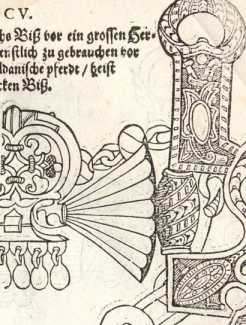 CV.
Biß vor ein grossen Her-
enstlich zu gebrauchen vor
ldanische pferdt / heist
cken Biß.